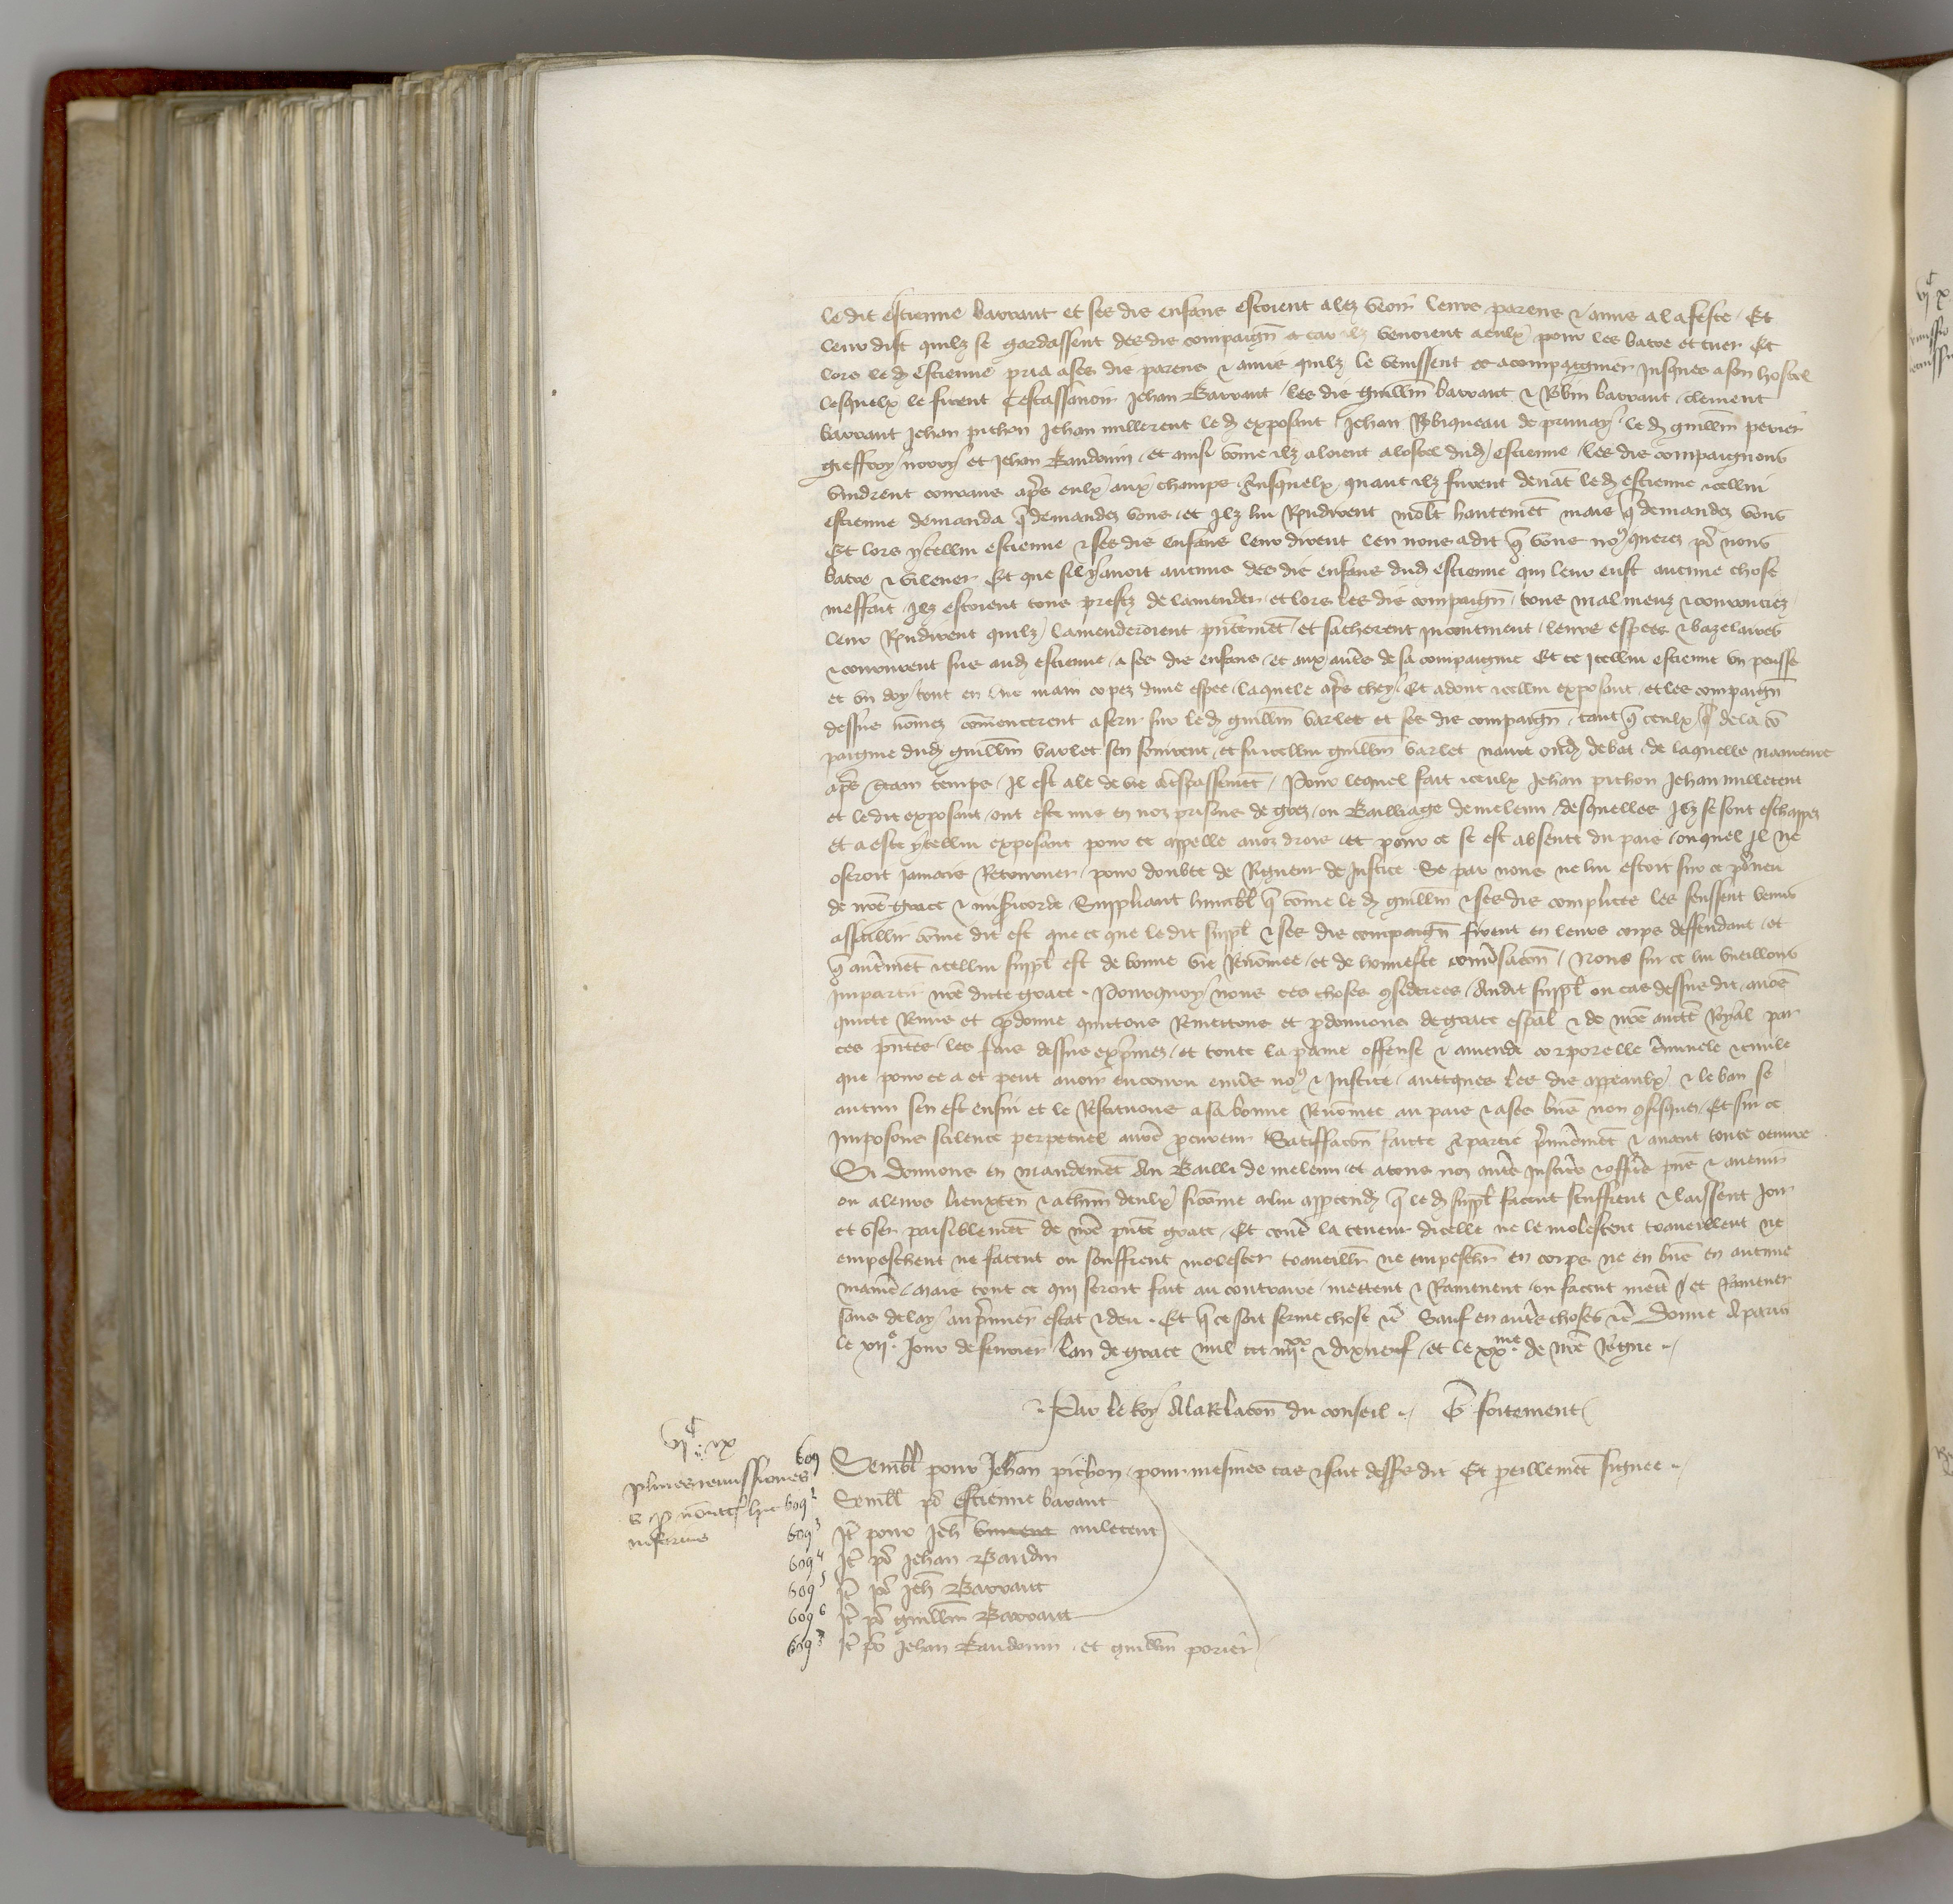 Le dit estienne barraut et ses dis enfans estoient alez veoir leurs parens & amis a la feste Et
leur dist quilz se gardassent des dis compaign et car ilz venoient a eulx pour les batre et tuer Et
lors le d estienne pria a ses dis parens & amis quilz le venissent acompaignier Jusques a son hostel
lesquelx le firent Cestassavoir Jehan Barraut les dis guillm barraut & Robin barraut clement
barraut Jehan pichon Jehan milletent le d exposant Jehan Robiqueau de prunay le d guillm perier
gieffroy norry et Jehan Baudouin et ainsi come ilz aloient a lostel dud estienne les dis compaignons
vindrent courans aps eulx aux champs quant ilz furent devat led estienne icellui
estienne demanda q demandez vous et Jlz lui Rndirent molt hautemet mais q demandez vous
Et lors ycellui estienne & ses dis enfans leur dirent len nous a dit q vous no9 querez po nous
batre & vilener Et que sil y avoit aucuns des dis enfans dud estienne qui leur eust aucune chose
meffait Jlz estoient tous prestz de lamender et lors les dis compaign tous mal meuz & courouciez
leur Rndirent quilz lamenderoient pntemet et sacherent incontinent leurs espees & bazelaires
& coururent sus aud estienne a ses dis enfans et aux aures de sa compaignie Et ce Jcellui estienne un pousse
et un doy tout en une main copez dune espee laquele aps chey Et adont icellui exposant et les compaign
dessus nomez comencerent a ferir sur le d guillm varlet et ses dis compaign tant q ceulx q de la co
paignie dud guillm varlet sen fouirent et fu icellui guillm varlet navre oud debat de laquelle navreure
aps temps Jl est ale de vie a tspassemet Pour lequel fait iceulx Jehan pichon Jehan milletent
et ledit exposant ont este mis en noz prisons de grez ou Bailliage de meleun desquelles Jlz se sont eschappez
Et a este ycellui exposant pour ce appelle a noz drois et pour ce se est absente du pais ouquel Jl ne
oseroit Jamais Retourner pour doubte de Rigueur de Justice Se par nous ne lui estoit sur ce pourveu
de nre grace & misicorde Suppliant humbl q come le d guillm & ses dis complices les feussent venus
assaillir come dit est que ce que le dit suppl & ses dis compaign firent en leurs corps deffendant et
q autmet icellui suppl est de bonne vie Renomee et de honneste convsacon Nous sur ce lui vueillons
Impartir nre dicte grace Pourquoy nous ces choses 9siderees Audit suppl ou cas dessus dit avos
quicte Remis et pdonne quictons Remettons et pdonnons de grace espal & de nre aucte Royal par
ces pntes les fais dessus exprimez et toute la paine offense & amende corporelle cminele & civile
que pour ce a et peut avoir encouru envs no9 & Justice avecques les dis appeaulx & le ban se
aucun sen est ensui et le Restituons a sa bonne Renomee au pais & a ses bns non 9fisquez Et sur ce
Imposons scilence perpetuel a nre procureur Satiffacon faicte a partie prmieremet & avant toute oeuvre
Si donnons en mandemet Au Bailli de meleun et a tous noz autrs Justicrs & offics pns & avenir
ou a leurs lieuxten & a chun deulx sicome a lui apptend q le d suppl facent seuffrent & laissent Joir
et user paisiblemet de nre pnte grace Et contr la teneur dicelle ne le molestent travaillent ne
empeschent ne facent ou seuffrent molester travaillr ne empeschr en corps ne en bns en aucune
manie Mais tout ce qui seroit fait au contraire mettent & Ramenent ou facent mett et Ramener
sans delay au prmier estat & deu Et q ce soit ferme chose &c Sauf en autrs choses &c Donne A paris
le VIIe Jour de fevrier lan de grace mil CCC IIIIxx & dixneuf et le XXme de nre Regne

Par le Roy A la Relacon du conseil G fortement
VIc IX
609 Sembl pour Jehan pichon pour mesmes cas & fait dess dit Et paillemet signee
plures remissiones
609 2 Sembl po Estienne barraut
inferius
609 3 It pour Jeh milletent
609 4 It po Jehan Baudin
609 5 It po Jeh Barraut
609 6 It po guillm Barraut
609 7 It po Jehan Baudouin et guillm perier